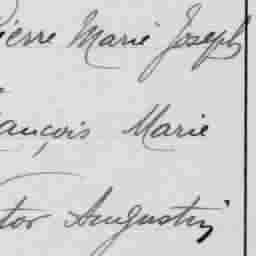 Pierre Marie Joseph
ançois Marie
tor Augustin